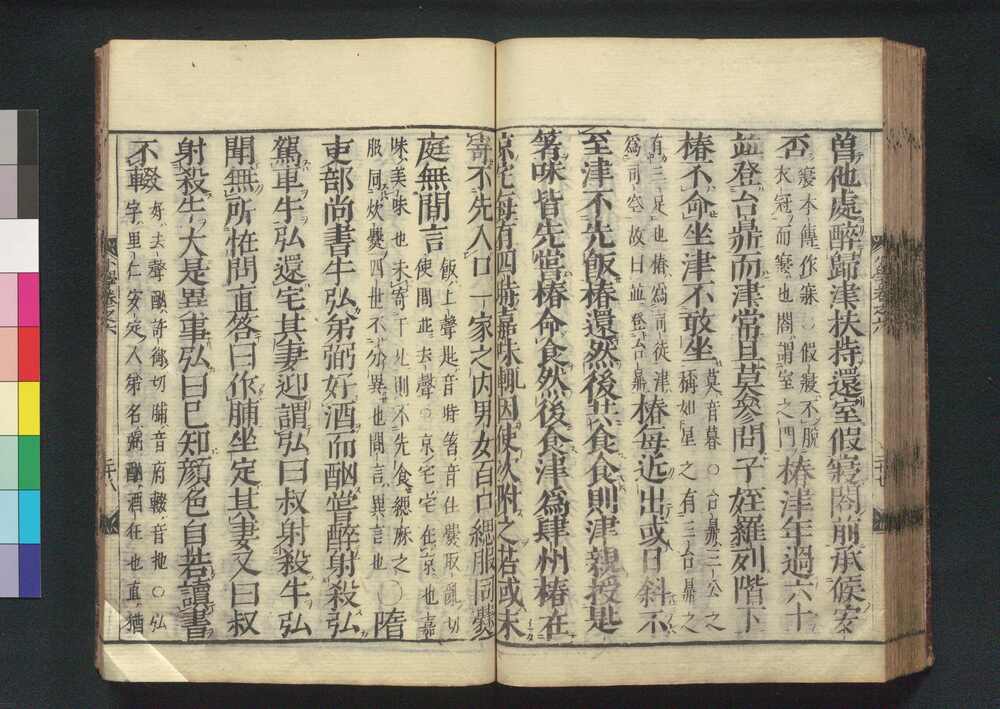 曾他處醉歸津扶持還室假寢閤前承候安
否寢本傳作寐○假寢不脫
衣冠而寢也閤謂室之門椿津年過六十
並登台鼎而津常旦莫參問子姪羅列階下
椿不命坐津不敢坐莫音暮○台鼎三公之
稱如星之有三台鼎之
有三足也椿爲司徒津
爲司空故曰並登台鼎椿每近出或日斜不
至津不先飯椿還然後共食食則津親授匙
箸味皆先嘗椿命食然後食津爲肆州椿在
京宅每有四時嘉味輒因使次附之若或未
寄不先入口一家之内男女百口緦服同爨
庭無間言飯上聲匙音時箸音住爨取亂切
使間並去聲○京宅宅在京也嘉
味美味也未寄于兄則不先食緦麻之
服同炊爨四世不分異也間言異言也○隋
吏部尚書牛弘弟弼好酒而酗嘗醉射殺弘
駕車牛弘還宅其妻迎謂弘曰叔射殺牛弘
聞無所怪問直答曰作脯坐定其妻又曰叔
射殺牛大是異事弘曰已知顔色自若讀書
不輟好去聲酗許御切脯音府輟音拙○弘
字里仁安定人弟名弼酗酒狂也直猶